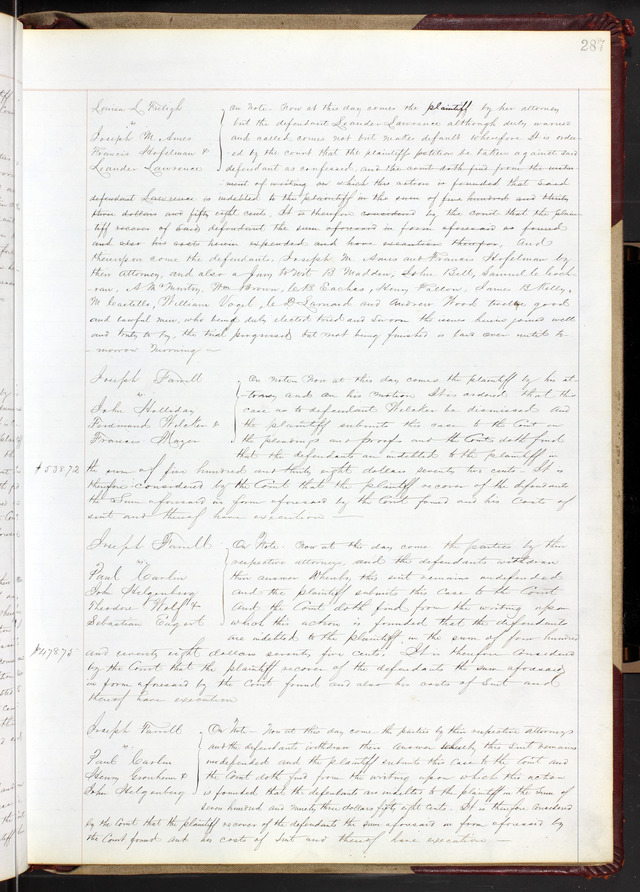 287
Louisa L. Kreigh } On Note - Now at this day comes the plaintiff by her attorney
vs but the defendant Leander Lawrence although duly warned
Joseph M. Ames and called comes not but makes default Wherefore It is order-
Francis Hofelman & ed by the court that the plaintiffs petition be taken against said
Leander Lawrence defendant as confessed, and the court doth find from the instru-
ment of writing on which this action is founded that said
defendant Lawrence is indebted to the plaintiff in the sum of five hundred and thirty
three dollars and fifty eight cents. It is therefore considered by the court that the plain-
tiff recover of said defendant the sum aforesaid in form aforesaid as found
and also his costs herein expended and have execution therefor, And
thereupon come the defendants, Joseph M. Ames and Francis Hofelman by
their Attorney, and also a Jury to wit B Madden, John Bell, Samuel C Coch-
ran, A McMurtry, Wm Brown, Eachas, Henry Fellow, James B Kelly,
M Castello, William Vogel, Lanard and Andrew Wood twelve good
and lawful men, who being duly elected tried and sworn the issues herein joined well
and truly to try, the trial progressed, but not being finished is laid over until to-
-morrow Morning -
Joseph Farrell } On Note Now at this day comes the plaintiff by his at-
vs torney and on his motion It is ordered that this
John Holliday case as to defendant Welcker be dismissed And
Ferdinand Welcker & the plaintiff submits this case to the Court on
Francis Mayer the pleadings and proofs and the Court doth find
that the defendants are indebted to the plaintiff in
$538.72 the sum of five hundred and thirty eight dollars seventy two cents. It is
therefore considered by the Court that the plaintiff recover of the defendants
the Sum aforesaid in form aforesaid by the Court found and his Costs of
suit and thereof have execution -
Joseph Farrell } On Note - Now at this day come the parties by their
vs respective attorneys, and the defendants withdraw
Paul Carlin their answer Whereby this suit remains undefended
John Helgenberg and the plaintiff submits this Case to the Court
Theodore Wolf & And the Court doth find from the writing upon
Sebastian Engert which this action is founded that the defendants
are indebted to the plaintiff in the sum of four hundred
$478.75 and seventy eight dollars seventy five cents, It is therefore Considered
by the Court that the plaintiff recover of the defendants the sum aforesaid
in form aforesaid by the Court found and also his costs of Suit and
thereof have execution
Joseph Farrell } On Note - Now at this day come the parties by their respective attorneys
vs and the defendants withdraw their answer whereby this Suit remains
Paul Carlin undefended and the plaintiff submits this Case to the Court and
Henry & the Court doth find from the writing upon which this action
John Helgenberg is founded that the defendants are indebted to the plaintiff in the Sum of
seven hundred and ninety three dollars fifty eight cents. It is therefore considered
by the Court that the plaintiff recover of the defendants the sum aforesaid in form aforesaid by
the Court found and his costs of suit and thereof have execution -